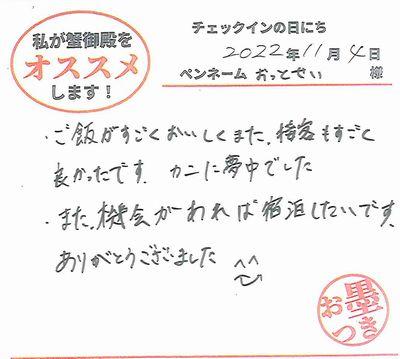 私が蟹御殿を
オススメ
します！
チェックインの日にち
2022年11月4日
ペンネーム おっとせい 様
・ご飯がすごくおいしくまた、接客もすごく
良かったです。カニに夢中でした
・また、機会がわれば宿泊したいです。
ありがとうございました
お墨つき